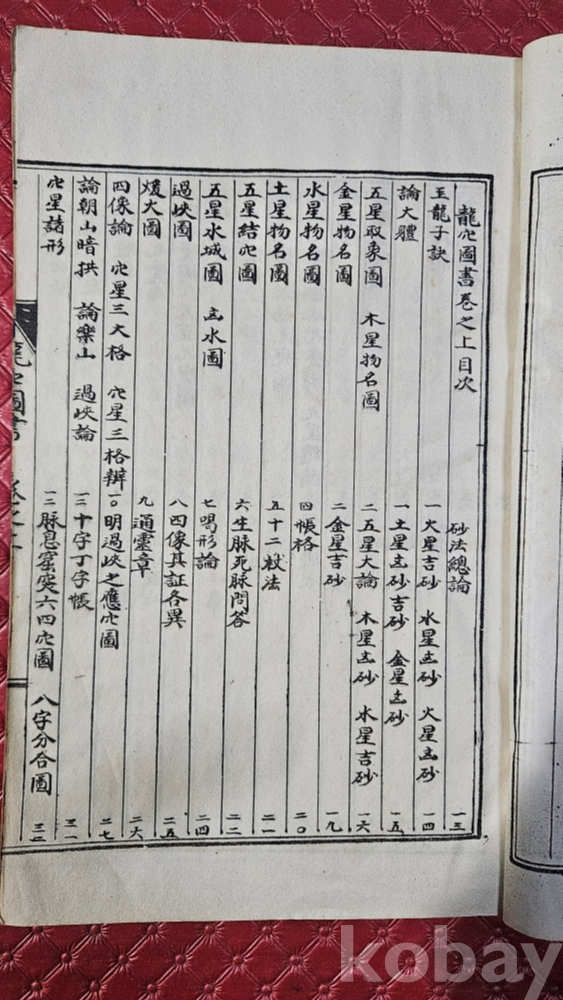 龍穴圖書卷之上目次 砂法總論 一三
玉龍子訣 一 火星吉砂 水星凶砂 火星凶砂 一四
論大體 一 土星凶砂吉砂 金星凶砂 一五
五星取象圖 木星物名圖 二 五星大論 木星凶砂 水星吉砂 一六
金星物名圖 二 金星吉砂 一九
水星物名圖 四 帳格 二〇
土星物名圖 五 十二杖法 二一
五星結穴圖 六 生脉死脉問答 二二
五星水城圖 凶水圖 七 喝形論 二四
過峽圖 八 四像真証各異 二五
煖火圖 九 通靈章 二六
四像論 穴星三大格 穴星三格辨 一〇 明過峽之應穴圖 二七
論朝山暗拱 論樂山 過峽論 一二 十字丁字帳 三一
穴星諸形 一二 脉息窟突六四穴圖 八字分合圖 三二
龍穴圖書 卷之上
kobay